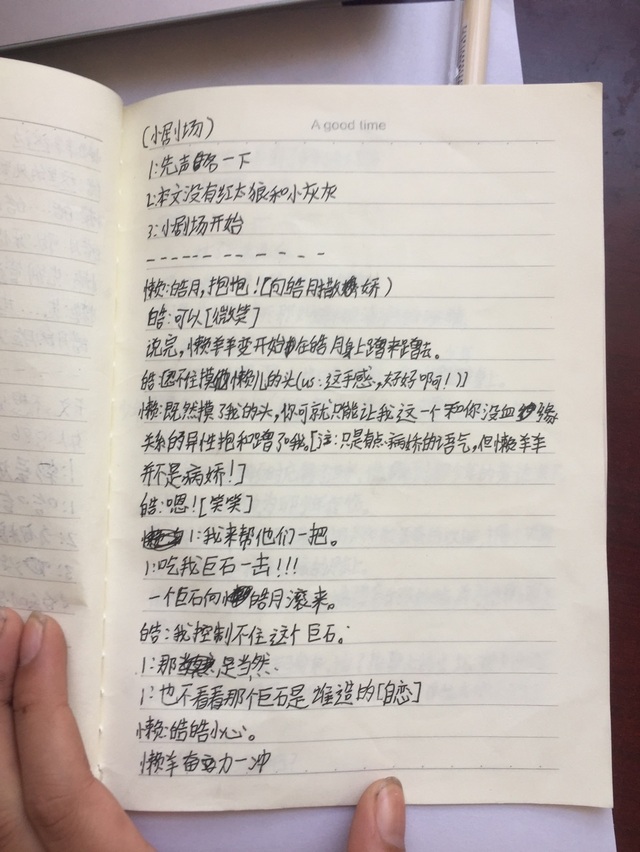 A good time
(小剧场)
1:先声名一下
2:本文没有红太狼和小灰灰
3:小剧场开始
懒:皓月,抱抱![向皓月撒娇)
皓:可以[微笑]
说完,懒羊羊变开始在皓月身上蹭来蹭去。
皓:忍不住摸懒儿的头(us:这手感,好好啊!)]
懒:既然摸了我的头,你可就只能让我这一个和你没血缘
关系的异性抱和蹭了哦。[注:只是有点病娇的语气,但懒羊羊
并不是病娇!]
皓:嗯![笑笑]
1:我来帮他们一把。
1:吃我巨石一击!!!
一个巨石向皓月滚来。
皓:我控制不住这个巨石。
1:那是当然.
1:也不看看那个巨石是谁造的[自恋]
懒:皓皓小心。
懒羊奋力一冲